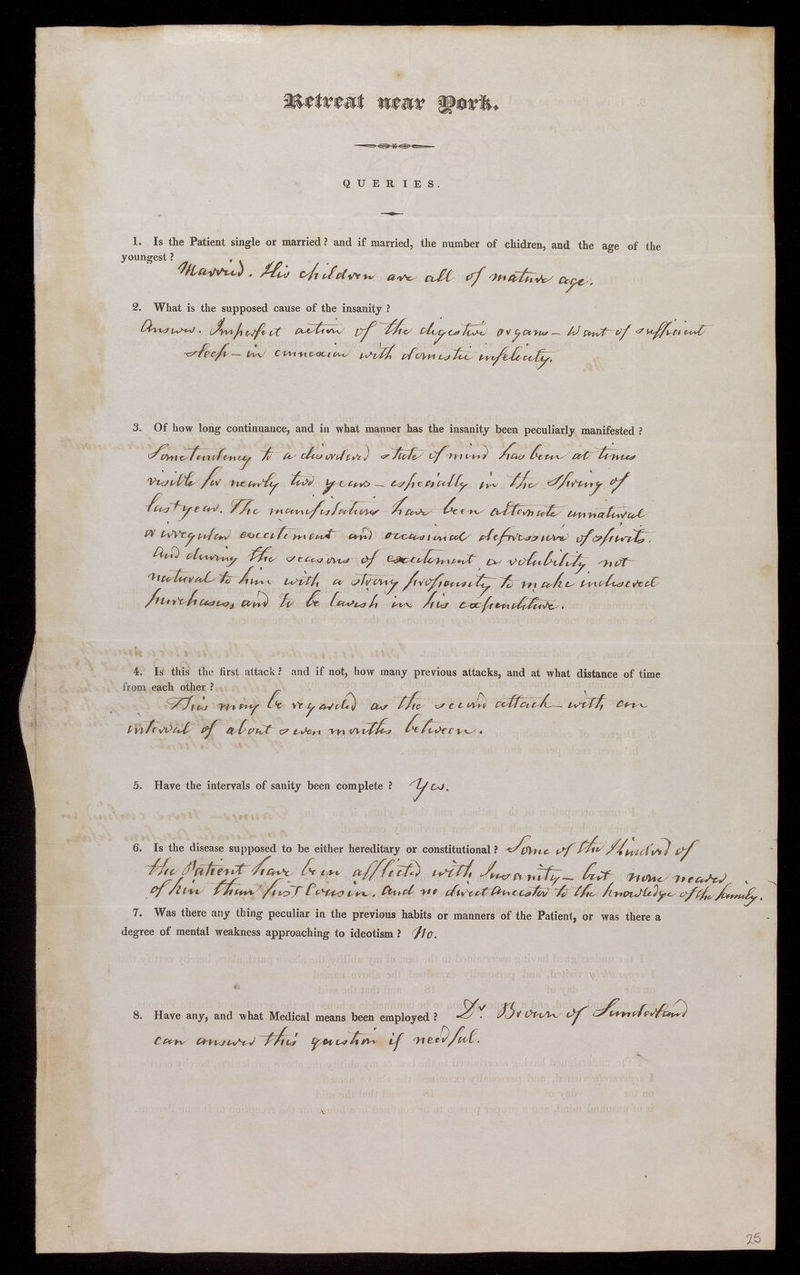 Retreat near York.
QUERIES.
1. Is the Patient single or married? and if married, the number of chidren, and the age of the
youngest?
Married. His children are all of mature age.
2. What is the supposed cause of the insanity?
Answer. Imperfect action of the digestive organs — Want of sufficient
sleep — in connexion with domestic infelicity.
3. Of how long continuance, and in what manner has the insanity been peculiarly manifested?
Some tendency to a disordered state of mind has been at times
visible for nearly two years — especially in the Spring of
last year. The manifestations have been alternate unnatural
or irregular excitement and occasional depressure of spirits.
And during the seasons of excitement a volubility not
natural to him with a strong propensity to make indiscreet
purchases, and to be lavish in his expenditure.
4. Is this the first attack? and if not, how many previous attacks, and at what distance of time
from each other?
This may be regarded as the second attack — with an
interval of about seven months between.
5. Have the intervals of sanity been complete? Yes.
6. Is the disease supposed to be either hereditary or constitutional? Some of the Kindred of
the Patient have been affected with Insanity — but none nearer
of kin than first Cousin. And no direct Ancestor to the knowledge of the family.
7. Was there any thing peculiar in the previous habits or manners of the Patient, or was there a
degree of mental weakness approaching to ideotism? No.
8. Have any, and what Medical means been employed? Dr. Brown of Sunderland
can answer this question if needful.
25